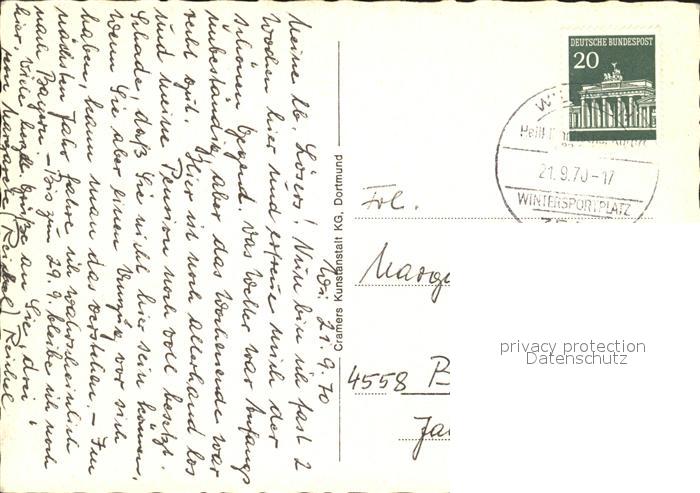 Wi. 21.9.70
Meine lb. Lösers! Nun bin ich fast 2
Wochen hier und erfreue mich der
schönen Gegend. Das Wetter war Anfangs
unbeständig, aber das Wochenende war
recht gut. Hier ist noch allerhand los
und meine Pension noch voll besetzt.
Schade, daß Sie nicht hier sein können,
wenn Sie aber einen Umzug vor sich
haben, kann man das verstehen. – Im
nächsten Jahr fahre ich wahrscheinlich
nach Bayern. – Bis zum 29.9. bleibe ich noch
hier. Viele herzl. Grüße an Sie drei
Cramers Kunstanstalt KG, Dortmund
DEUTSCHE BUNDESPOST
20
21.9.70-17
WINTERSPORTPLATZ
Frl.
Marg
4558 B
Ja
privacy protection
Datenschutz